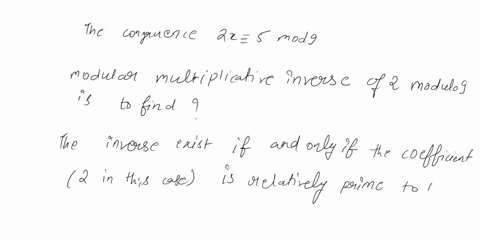 The congruence 2x ≡ 5 mod9
modular multiplicative inverse of 2 modulo9
is to find ?
The inverse exist if and only if the coefficient
(2 in this case) is relatively prime to